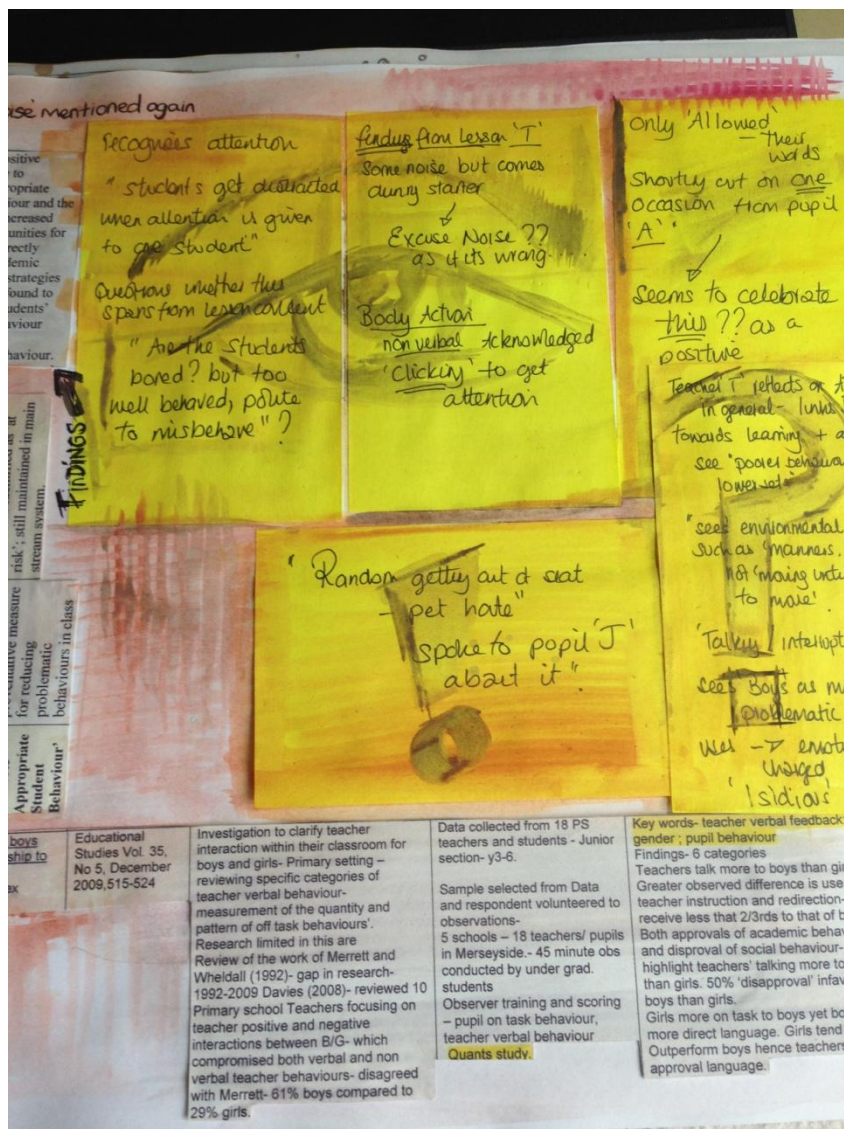 ise mentioned again
sitive
to
opriate
iour and the
creased
unities for
rectly
demic
strategies
ound to
udents'
aviour
haviour.
risk'; still maintained in main
stream system.
measure
for reducing
problematic
behaviours in class
Appropriate
Student
Behaviour'
FINDINGS
recognises attention
"Students get distracted
when attention is given
to one student"
Questions whether this
spans from lesson content
"Are the students
bored? but too
well behaved, polite
to misbehave"?
findings from Lesson 'T'
Some noise but comes
during starter
Excuse Noise ??
as if its wrong.
Body Action
non verbal Acknowledged
'Clicking' to get
attention
Only 'Allowed'
– their
words
Shortly cut on one
occasion from pupil
'A'.
Seems to celebrate
this?? as a
positive
Teacher 'T' reflects on
in general- links
towards learning + a
see "poorer behaviou
lower sets
"sees environmental
such as 'manners.
not 'moving unti
to move'.
'Talking interrupt
sees Boys as m
problematic
uses → emoti
charged
'Isidious'
"Random getting out of seat
– pet hate"
spoke to pupil 'J'
about it".
boys
ship to
ex
Educational
Studies Vol. 35,
No 5, December
2009,515-524
Investigation to clarify teacher
interaction within their classroom for
boys and girls- Primary setting –
reviewing specific categories of
teacher verbal behaviour-
measurement of the quantity and
pattern of off task behaviours'.
Research limited in this are
Review of the work of Merrett and
Wheldall (1992)- gap in research-
1992-2009 Davies (2008)- reviewed 10
Primary school Teachers focusing on
teacher positive and negative
interactions between B/G- which
compromised both verbal and non
verbal teacher behaviours- disagreed
with Merrett- 61% boys compared to
29% girls.
Data collected from 18 PS
teachers and students - Junior
section- y3-6.
Sample selected from Data
and respondent volunteered to
observations-
5 schools – 18 teachers/ pupils
in Merseyside.- 45 minute obs
conducted by under grad.
students
Observer training and scoring
– pupil on task behaviour,
teacher verbal behaviour
Quants study.
Key words- teacher verbal feedback:
gender ; pupil behaviour
Findings- 6 categories
Teachers talk more to boys than gir
Greater observed difference is use
teacher instruction and redirection-
receive less that 2/3rds to that of b
Both approvals of academic behav
and disproval of social behaviour-
highlight teachers' talking more to
than girls. 50% 'disapproval' infav
boys than girls.
Girls more on task to boys yet bo
more direct language. Girls tend
Outperform boys hence teachers
approval language.